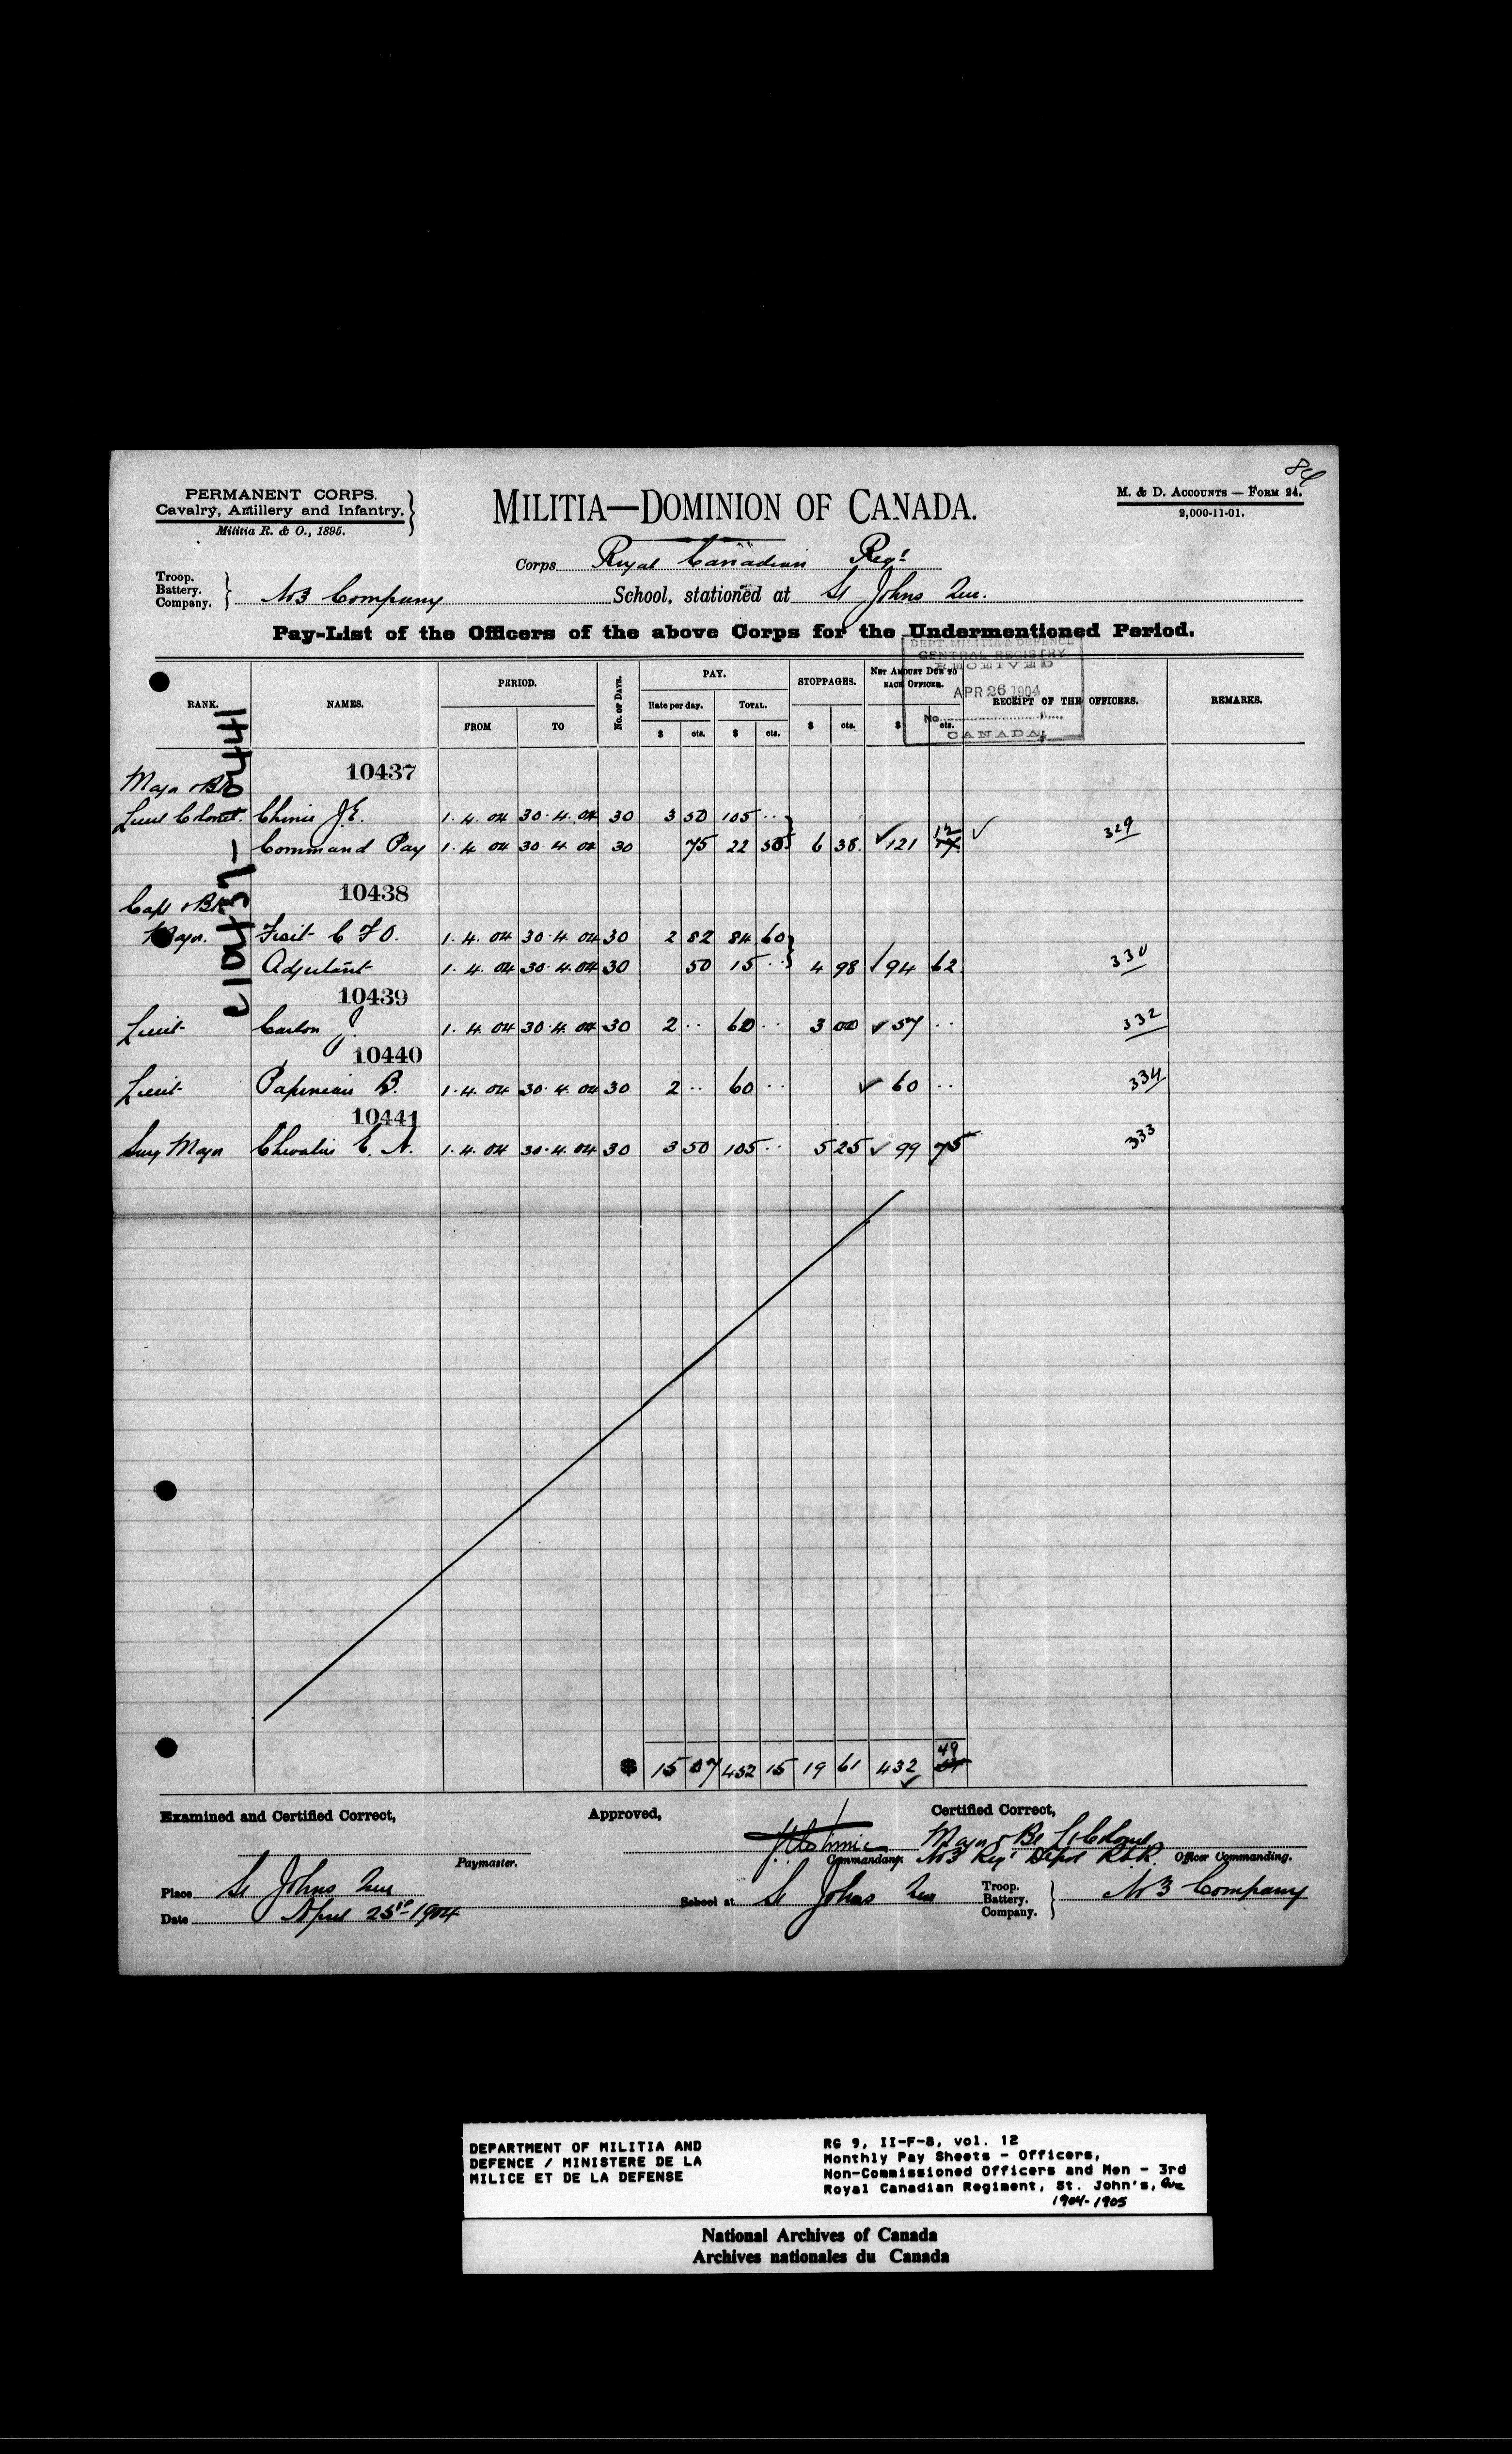 84
PERMANENT CORPS.
Cavalry, Artillery and Infantry.
Militia R. & O., 1895.
MILITIA—DOMINION OF CANADA.
M. & D. ACCOUNTS — FORM 24.
2,000-11-01.
Corps Royal Canadian Regt
Troop.
Battery.
Company.
No 3 Company School, stationed at St Johns Que.
Pay-List of the Officers of the above Corps for the Undermentioned Period.
DEPT. MILITIA & DEFENCE
CENTRAL REGISTRY
RECEIVED
APR 26 1904
No.
CANADA
RANK. NAMES. PERIOD. FROM TO No. of Days. PAY. Rate per day. $ cts. TOTAL. $ cts. STOPPAGES. $ cts. NET AMOUNT DUE TO EACH OFFICER. $ cts. RECEIPT OF THE OFFICERS. REMARKS.
10437-10441
10437
Major & Bt
Lieut Colonel. Chinic J.E. 1.4.04 30.4.04 30 3 50 105 ..
Command Pay 1.4.04 30.4.04 30 75 22 50 6 38 121 12 329
10438
Capt & Bt
Major. C F O. 1.4.04 30.4.04 30 2 82 84 60
Adjutant 1.4.04 30.4.04 30 50 15 .. 4 98 94 62 330
10439
Lieut Carlon J. 1.4.04 30.4.04 30 2 .. 60 .. 3 00 57 .. 332
10440
Lieut Papineau B. 1.4.04 30.4.04 30 2 .. 60 .. 60 .. 334
10441
Surg Major Chevalier E. N. 1.4.04 30.4.04 30 3 50 105 .. 5 25 99 75 333
$ 15 07 452 15 19 61 432 49
Examined and Certified Correct, Approved, Certified Correct,
Major & Bt Lt Colonel
Paymaster. Commandant. No 3 Reg Depot R.C.R. Officer Commanding.
Place St Johns Que School at St Johns Que Troop. Battery. Company. No 3 Company
Date April 25th 1904
DEPARTMENT OF MILITIA AND
DEFENCE / MINISTERE DE LA
MILICE ET DE LA DEFENSE
RG 9, II-F-8, vol. 12
Monthly Pay Sheets - Officers,
Non-Commissioned Officers and Men - 3rd
Royal Canadian Regiment, St. John's, Que
1904-1905
National Archives of Canada
Archives nationales du Canada